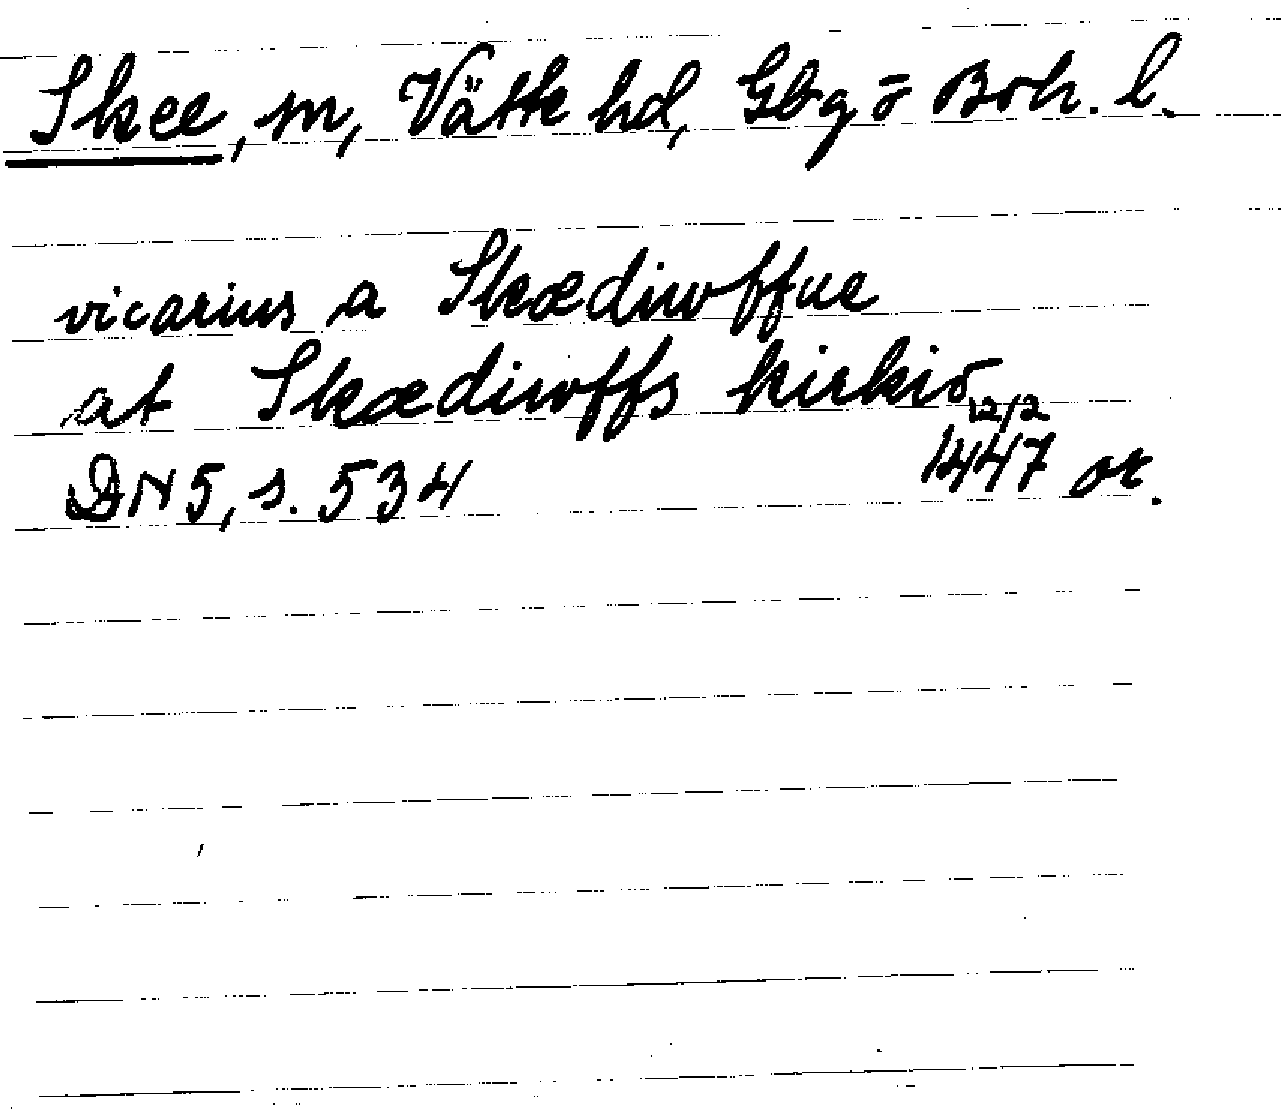 Skee, sn, Vätte hd, Gbg o Boh. l.
vicarius a Skædiwffue
at Skædiwffs kirkio
12/2
DN 5, s. 534 1447 or.